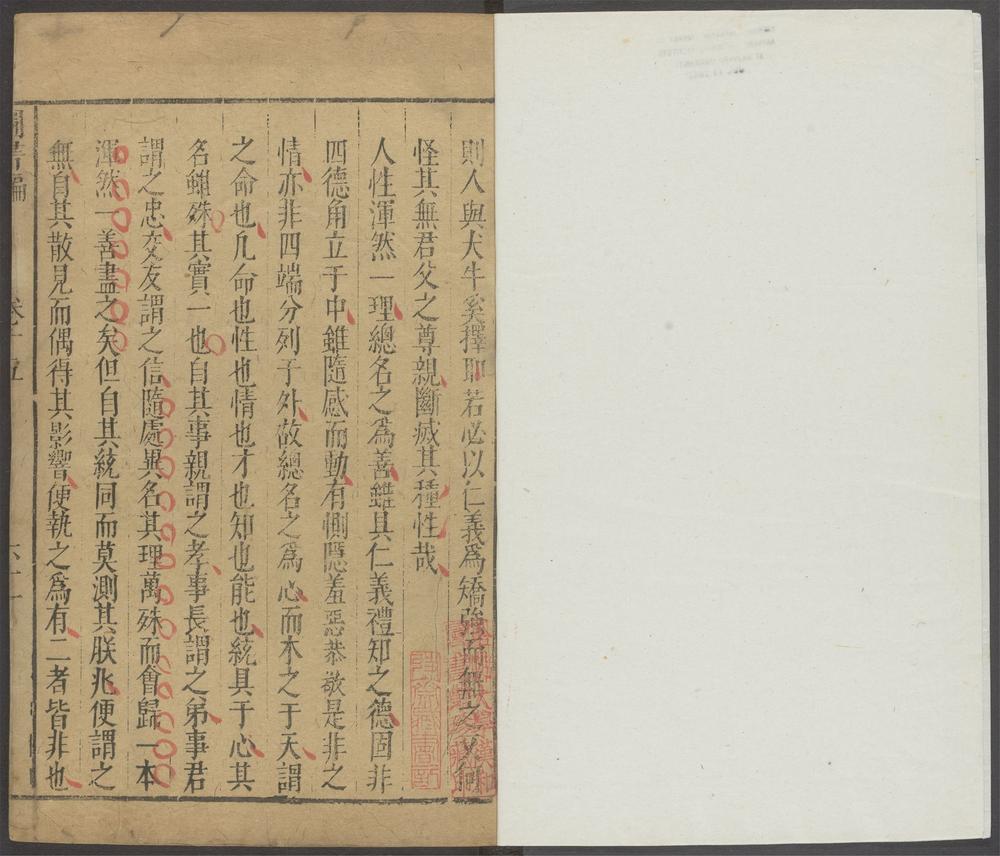 則人與犬牛奚擇耶若必以仁義爲矯強而無之又何
怪其無君父之尊親斷滅其種性哉
人性渾然一理總名之爲善雖具仁義禮知之德固非
四德角立于中雖隨感而動有惻隱羞惡恭敬是非之
情亦非四端分列于外故總名之爲心而本之于天謂
之命也凡命也性也情也才也知也能也統具于心其
名雖殊其實一也自其事親謂之孝事長謂之弟事君
謂之忠交友謂之信隨處異名其理萬殊而會歸一本
渾然一善盡之矣但自其統同而莫測其朕兆便謂之
無自其散見而偶得其影響便執之爲有二者皆非也
圖書編
卷十五